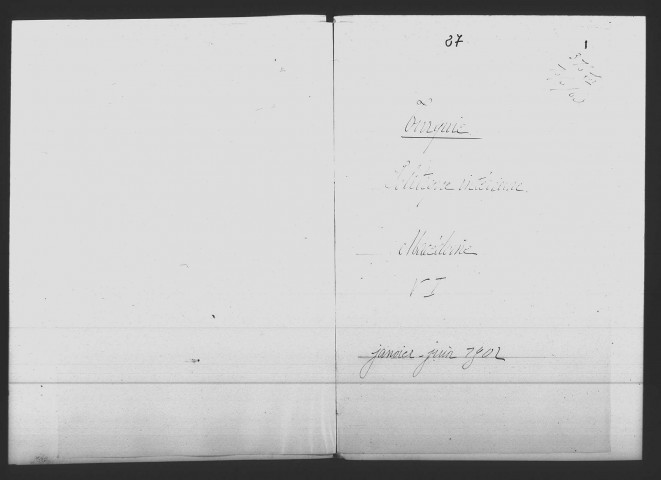 37
1
Turquie
Politique intérieure
Macédoine
V I
janvier - juin 1902